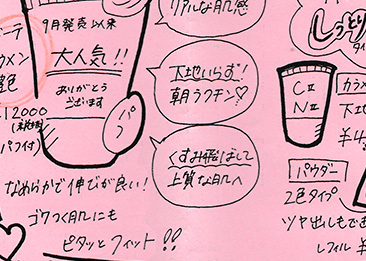 リアルな肌感
9月発売以来
大人気!!
ありがとう
ございます
パフ
下地いらず!
朝ラクチン♡
くすみ飛ばして
上質な肌へ
なめらかで伸びが良い!
ゴワつく肌にも
ピタッとフィット!!
メン
艶
12000
パフ付
しっとり
CII
NII
カラメ
下地
¥4
パウダー
2色タイプ
ツヤ出しもでき
レフィル ¥